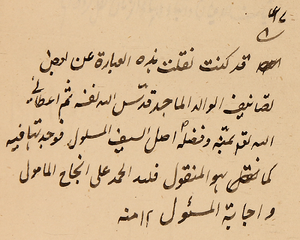 قد كنت نقلت هذه العبارة عن اصل
تصانيف الوالد الماجد قدّس الله نفسه ثم اعطانى
الله تعالى بمنّه وفضله اصل السيف المسلول فوجدتها فيه
كما هو المنقول فلله الحمد على انجاح المامول
و اجابة المسئول ١٢ منه